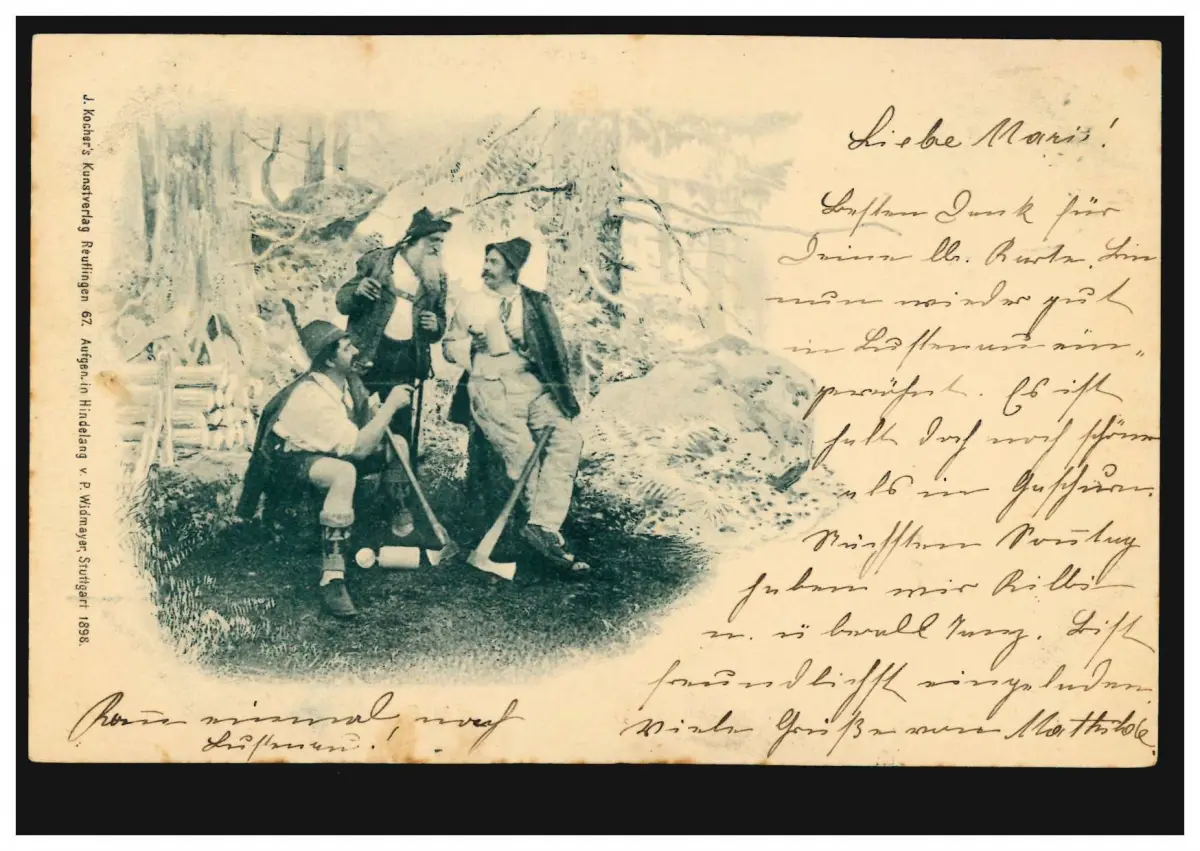 J. Kocher's Kunstverlag Reutlingen 67. Aufgen. in Hindelang v. P. Widmayer, Stuttgart 1898.
Liebe Marie!
Besten Dank für
Deine lb. Karte. Bin
nun wieder gut
in Lustenau ein„
gewöhnt. Es ist
halt doch noch schöner
als in Gaschurn.
Nächsten Sonntag
haben wir Kilbi
u. überall Tanz. Bist
freundlichst eingeladen.
Viele Grüße von Mathilde.
Komm einmal nach
Lustenau!